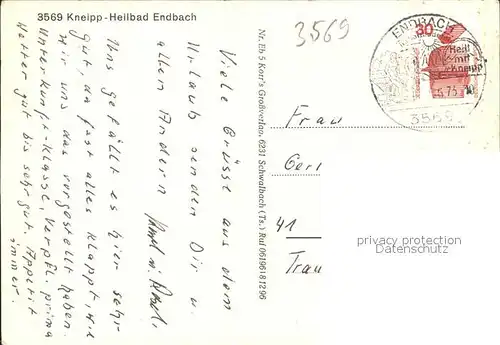 3569 Kneipp-Heilbad Endbach
3569
ENDBACH
30
Heil
mit
Kneipp
3569
Viele Grüsse aus dem
Urlaub senden Dir u.
allen Andern
Uns gefällt es hier sehr
gut, da fast alles klappt, wie
wir uns das vorgestellt haben.
Unterkunft-Klasse, Verpfl. prima
Wetter gut bis sehr gut. Appetit
immer.
Nr. Eb 5 Korr's Großverlag, 6231 Schwalbach (Ts.) Ruf 06196/81296
Frau
Gerl
41
Trau
privacy protection
Datenschutz